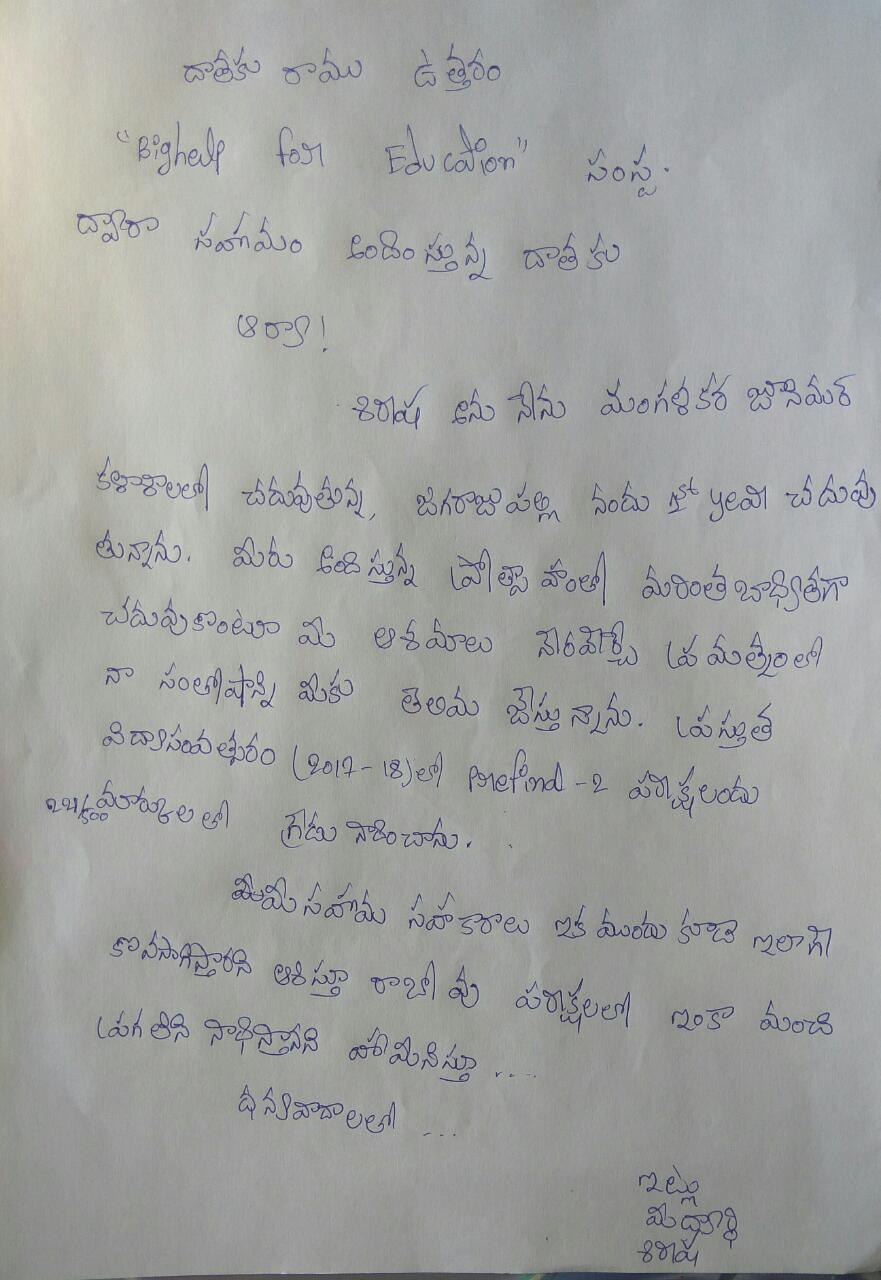 దాతకు రాము ఉత్తరం
"Bighelp for Education" సంస్థ.
ద్వారా సహాయం అందిస్తున్న దాతకు
ఆర్యా!
శిరీష అను నేను మంగళకర జూనియర్
కళాశాలలో చదువుతున్న, జగరాజుపల్లి నందు year చదువు
తున్నాను. మీరు అందిస్తున్న ప్రోత్సాహంతో మరింత బాధ్యతగా
చదువుకొంటూ మీ ఆశయాలు నెరవేర్చే ప్రయత్నంలో
నా సంతోషాన్ని మీకు తెలియ జేస్తున్నాను. ప్రస్తుత
విద్యాసంవత్సరం (2017-18)లో Prefinal-2 పరీక్షలందు
మార్కులతో గ్రేడు సాధించాను.
మీ సహాయ సహకారాలు ఇక ముందు కూడా ఇలాగే
కొనసాగిస్తారని ఆశిస్తూ రాబోవు పరీక్షలలో ఇంకా మంచి
ప్రగతిని సాధిస్తానని హామీనిస్తూ ....
ధన్యవాదాలతో ...
ఇట్లు
మీ విద్యార్థి
శిరీష